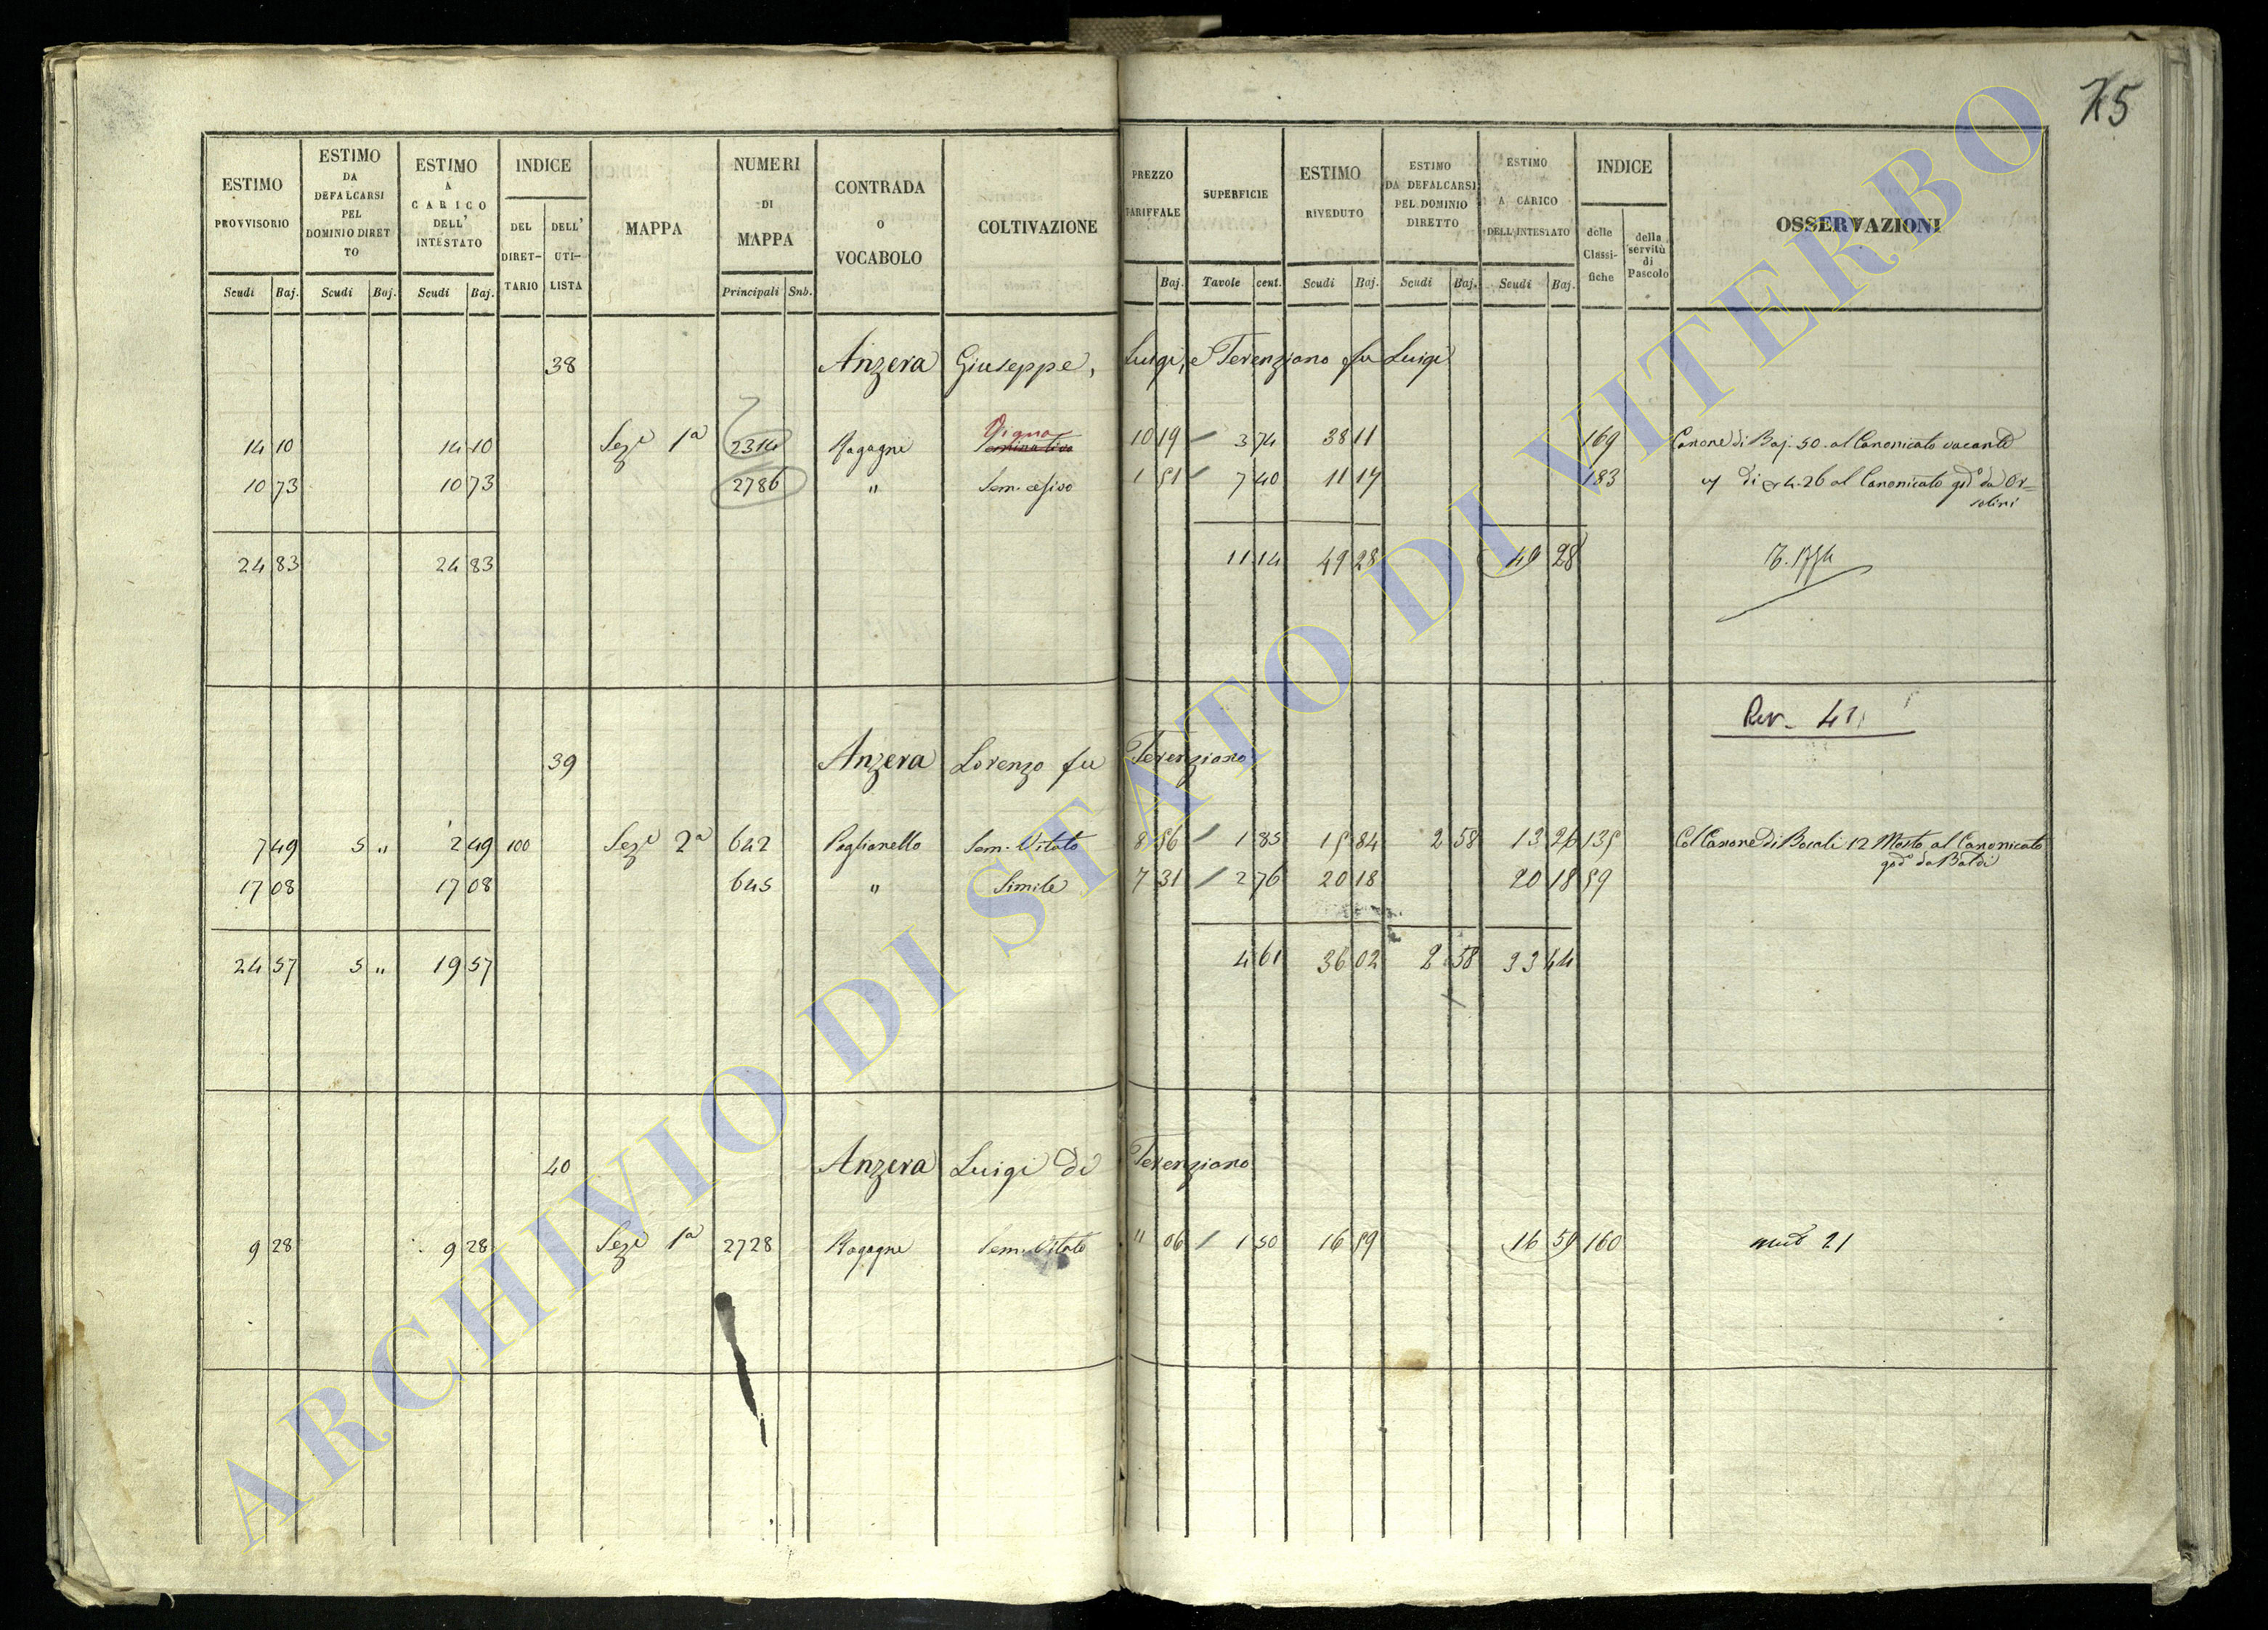 75
ESTIMO PROVVISORIO
ESTIMO DA DEFALCARSI PEL DOMINIO DIRETTO
ESTIMO A CARICO DELL' INTESTATO
INDICE
DEL DIRETTARIO
DELL' UTILISTA
MAPPA
NUMERI DI MAPPA
CONTRADA O VOCABOLO
COLTIVAZIONE
PREZZO TARIFFALE
SUPERFICIE
ESTIMO RIVEDUTO
ESTIMO DA DEFALCARSI PEL DOMINIO DIRETTO
ESTIMO A CARICO DELL'INTESTATO
INDICE
delle Classifiche
della servitù di Pascolo
OSSERVAZIONI
Scudi Baj. Scudi Baj. Scudi Baj. Principali Snb. Baj. Tavole cent. Scudi Baj. Scudi Baj. Scudi Baj.
38 Anzera Giuseppe, Luigi, e Terenziano fu Luigi
Vigna
14 10 14 10 Sezе 1a 2314 Ragagne Seminativo 10 19 3 74 38 11 169 Canone di Baj. 50 al Canonicato vacante
10 73 10 73 2786 " Sem. 1 51 7 40 11 17 183 di 4.26 al Canonicato god° da Or=
solini
24 83 24 83 11 14 49 28 49 28
Rev. 41
39 Anzera Lorenzo fu Terenziano
7 49 5 " 2 49 100 Seze 2a 642 Poglianello Sem. Vitato 8 56 1 85 15 84 2 58 13 26 135 Col Canone di Bocali 12 Mosto al Canonicato
god° da Baldi
17 08 17 08 645 " Simile 7 31 2 76 20 18 20 18 59
24 57 5 " 19 57 4 61 36 02 2 58 33 44
40 Anzera Luigi di Terenziano
9 28 9 28 Seze 1a 2728 Ragagne Sem. Vitato " 06 1 50 16 59 16 59 160 21
ARCHIVIO DI STATO DI VITERBO